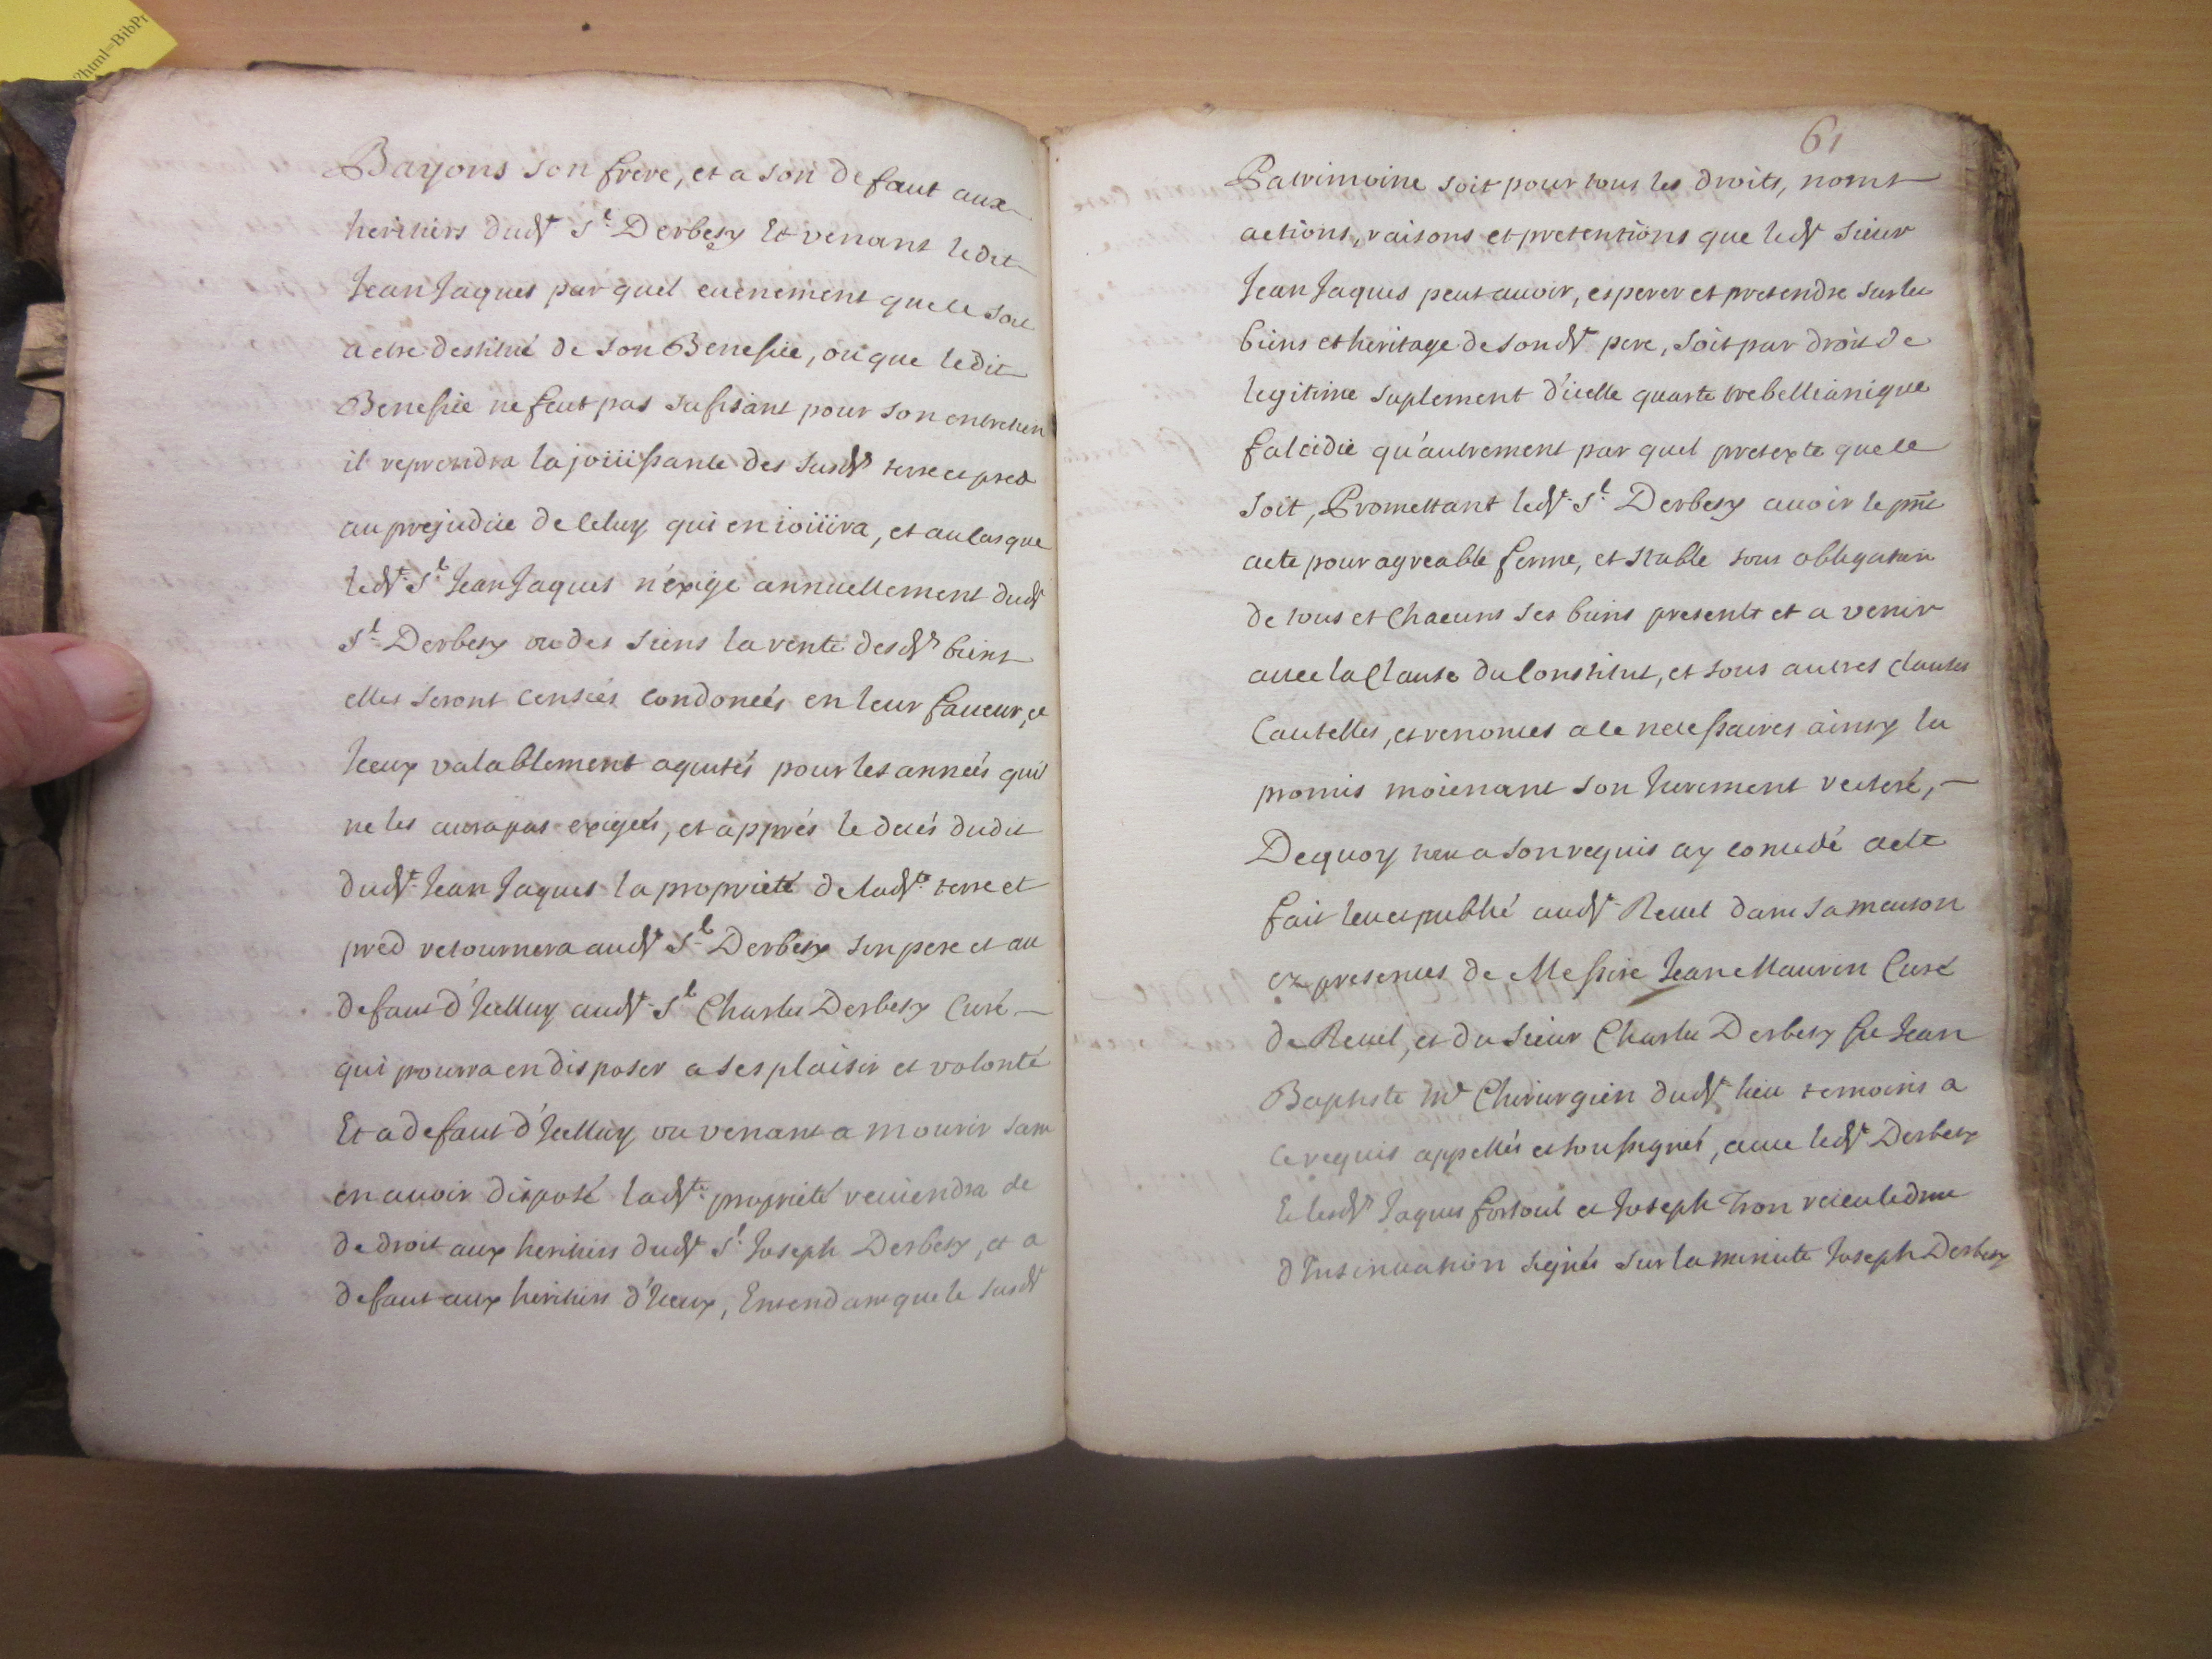 ?html=BibPr
Bayons son frere, et a son defaut aux
heritiers dudt Sr Derbesy Et venant ledit
Jean Jaques par quel evenement que ce soit
a etre destitué de son Benefice, ou que ledit
Benefice ne feut pas sufisant pour son entretien
il reprendra la joüissance des susdts terre et pred
au prejudice de celuy qui en ioüira, et au cas que
ledt Sr Jean Jaques n'exige annuellement dudt
Sr Derbesy ou des siens la rente desdts biens
elles seront censées condonées en leur faveur, et
Iceux valablement aquités pour les années qu'il
ne les aura pas exigées, et apprés le decés dudit
dudt Jean Jaques la proprieté de ladte terre et
pred retournera audt Sr Derbesy son pere et au
defaut d'Icelluy audt Sr Charles Derbesy Curé
qui pourra en disposer a ses plaisir et volonté
Et a defaut d'Icelluy ou venant a mourir sans
en avoir disposé ladte proprieté reviendra de
de droit aux heritiers dudt Sr Joseph Derbesy, et a
defaut aux heritiers d'Iceux, Entendant que le susdt
61
Patrimoine soit pour tous les droits, noms
actions, raisons et pretentions que ledt sieur
Jean Jaques peut avoir, esperer et pretendre sur les
biens et heritage de sondt pere, soit par droit de
legitime suplement d'icelle quarte trebellianique
falcidie qu'autrement par quel pretexte que ce
soit, Promettant ledt Sr Derbesy avoir le pnt
acte pour agreable ferme, et stable sous obligation
de tous et Chacuns ses biens presents et a venir
avec la Clause du Constitut, et sous autres clauses
Cautelles, et renonces a ce necessaires ainsy l'a
promis moienant son Jurement reiteré,
Dequoy nous a son requis ay concedé acte
fait leu et publié audt Revel dans sa maison
ez presences de Messire Jean Maurin Curé
de Revel, et du sieur Charles Derbesy fu Jean
Baptiste Me Chirurgien dudt lieu temoins a
ce requis appellés et soussignés, avec ledt Derbesy
Et lesdts Jaques fortoul et Joseph Tron
d'Insinuation signés sur la minute Joseph Derbesy